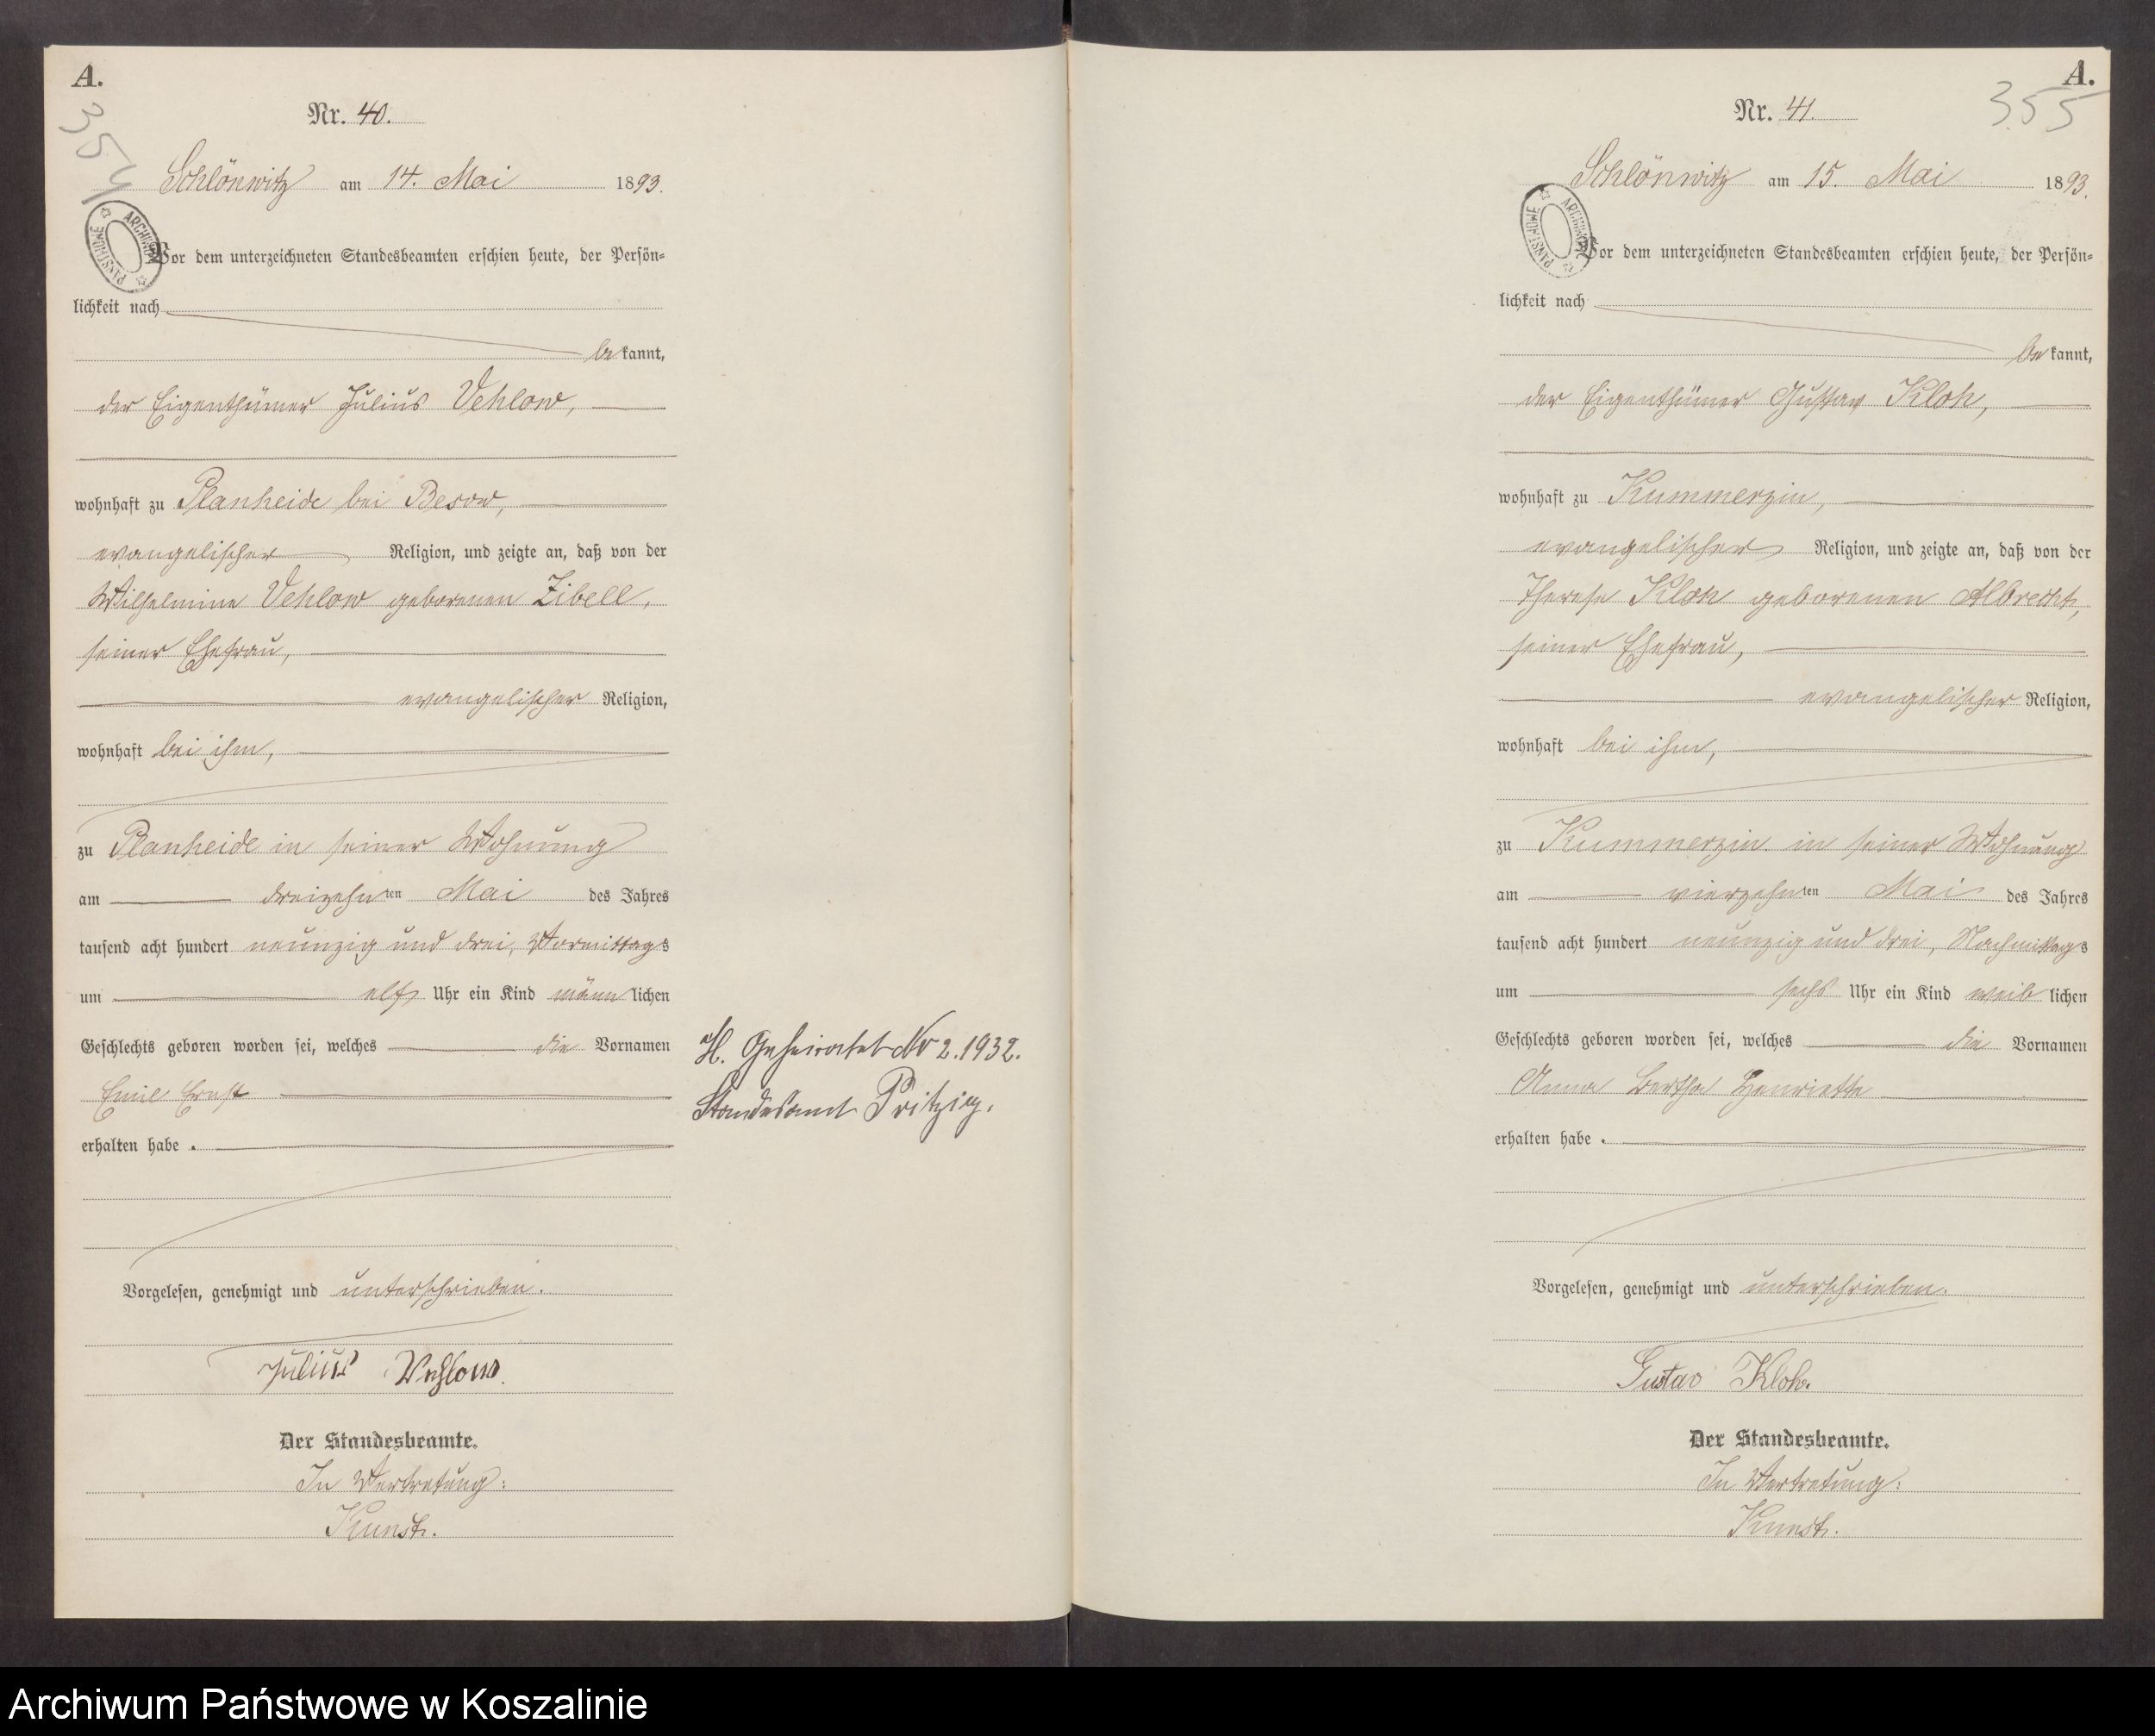 A.
354
Nr. 40.
Schlönwitz am 14. Mai 1893.
ARCHIWUM PAŃSTWOWE
Vor dem unterzeichneten Standesbeamten erschien heute, der Persön-
lichkeit nach
be kannt,
der Eigenthümer Julius Vehlow,
wohnhaft zu Planheide bei Besow,
evangelischer Religion, und zeigte an, daß von der
Wilhelmine Vehlow geborenen Zibell,
seiner Ehefrau,
evangelischer Religion,
wohnhaft bei ihm,
zu Planheide in seiner Wohnung
am dreizehnten Mai des Jahres
tausend acht hundert neunzig und drei, Vormittags
um elf Uhr ein Kind männlichen
Geschlechts geboren worden sei, welches die Vornamen
Emil Ernst
erhalten habe.
H. Geheiratet Nr 2.1932.
Standesamt Pritzig.
Vorgelesen, genehmigt und unterschrieben.
Julius Vehlow.
Der Standesbeamte.
In Vertretung:
Kunst.
A.
355
Nr. 41.
Schlönwitz am 15. Mai 1893.
ARCHIWUM PAŃSTWOWE
Vor dem unterzeichneten Standesbeamten erschien heute, der Persön-
lichkeit nach
be kannt,
der Eigenthümer Gustav Kloh,
wohnhaft zu Kummerzin,
evangelischer Religion, und zeigte an, daß von der
Therese Kloh geborenen Albrecht,
seiner Ehefrau,
evangelischer Religion,
wohnhaft bei ihm,
zu Kummerzin in seiner Wohnung
am vierzehnten Mai des Jahres
tausend acht hundert neunzig und drei, Nachmittags
um sechs Uhr ein Kind weiblichen
Geschlechts geboren worden sei, welches die Vornamen
Anna Bertha Henriette
erhalten habe.
Vorgelesen, genehmigt und unterschrieben.
Gustav Kloh.
Der Standesbeamte.
In Vertretung:
Kunst.
Archiwum Państwowe w Koszalinie